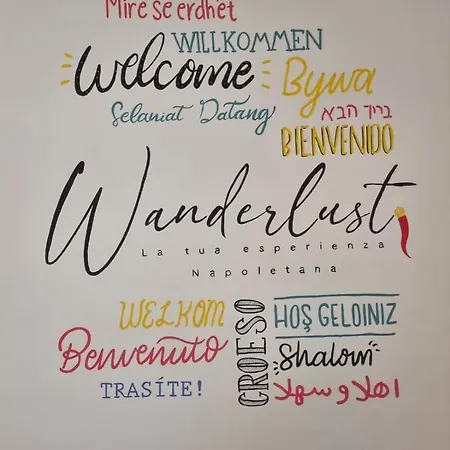 Mire se erdhët
WILLKOMMEN
Welcome
Bywa
Selamat Datang
ברוך הבא
BIENVENIDO
Wanderlust
La tua esperienza
Napoletana
WELKOM
Benvenuto
TRASÍTE!
CROESO
HOŞ GELDINIZ
Shalom
اهلا و سهلا